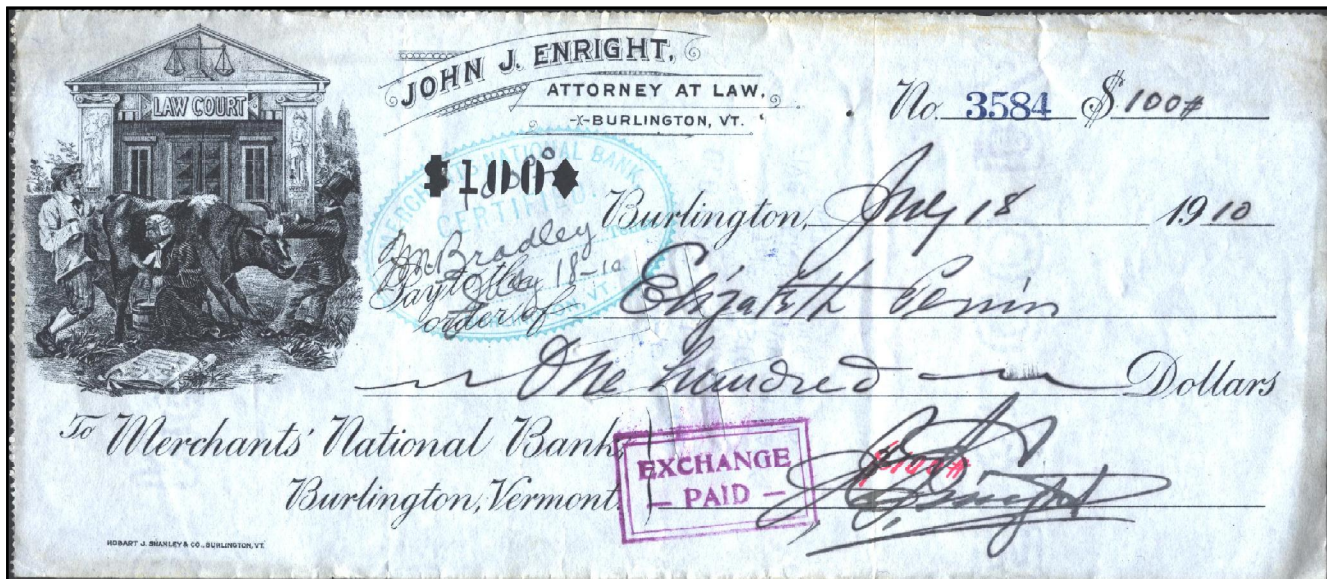 LAW COURT
JOHN J. ENRIGHT,
ATTORNEY AT LAW,
BURLINGTON, VT.
No. 3584 $100#
$100
MERCHANTS NATIONAL BANK
CERTIFIED
Burlington, July 18 1910
Bradley
July 18-10
Pay to the order of Elizabeth Perrin
One hundred Dollars
To Merchants' National Bank,
Burlington, Vermont.
EXCHANGE
- PAID -
J. J. Enright
HOBART J. SHANLEY & CO., BURLINGTON, VT.